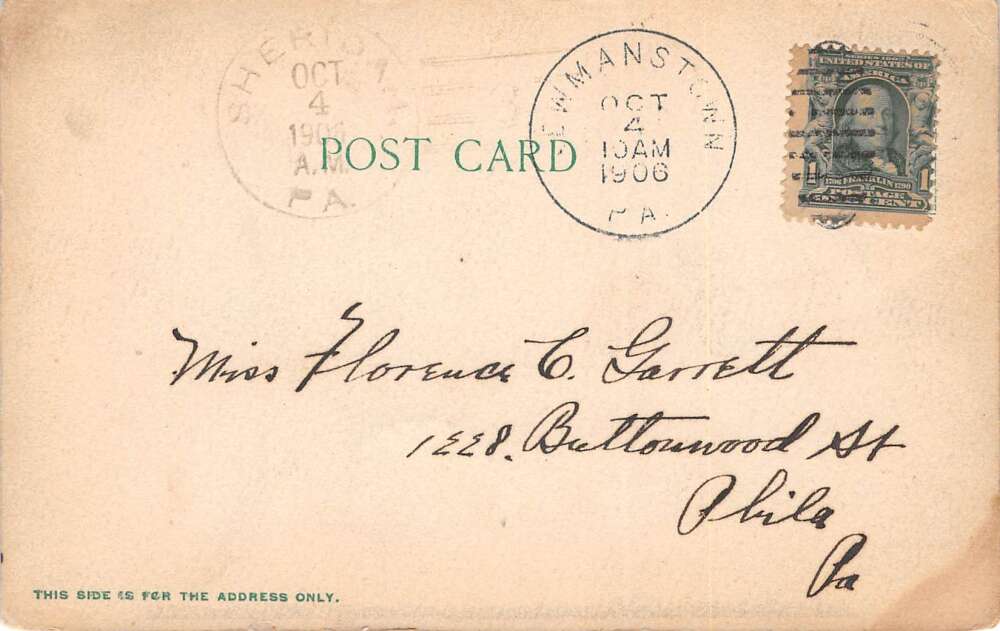 OCT
4
1906
A.M.
PA.
POST CARD
OCT
4
10AM
1906
PA.
SERIES 1902
UNITED STATES OF
AMERICA
1 1
1706 FRANKLIN 1790
POSTAGE
ONE CENT
Miss Florence C. Garrett
1228. Buttonwood St
Phila
Pa
THIS SIDE IS FOR THE ADDRESS ONLY.